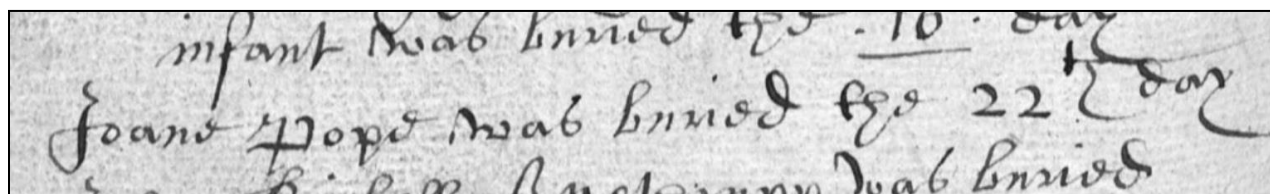 infant was buried the . 18 . day
Joane Pope was buried the 22th day
was buried